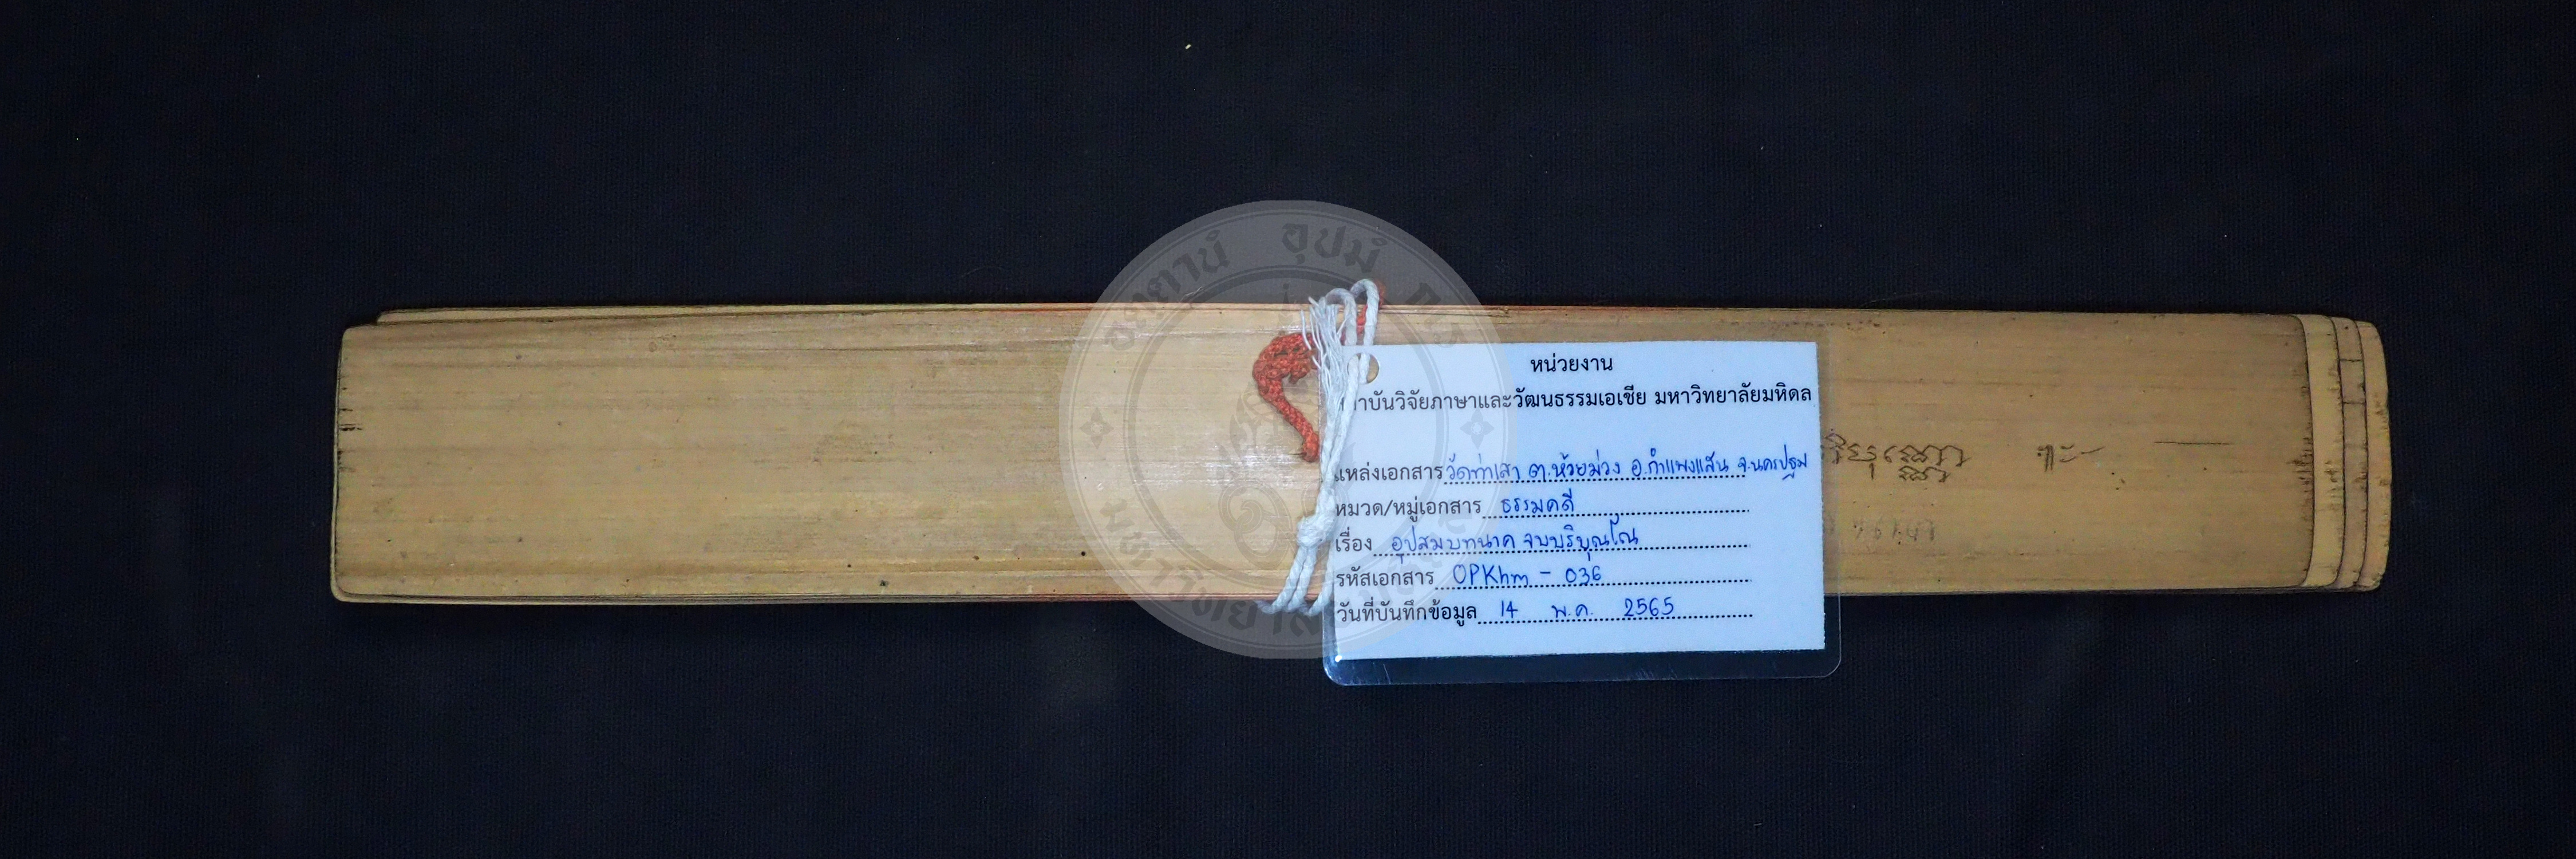 หน่วยงาน
สถาบันวิจัยภาษาและวัฒนธรรมเอเชีย มหาวิทยาลัยมหิดล
แหล่งเอกสาร วัดท่าเสา ต.ห้วยม่วง อ.กำแพงแสน จ.นครปฐม
หมวด/หมู่เอกสาร ธรรมคดี
เรื่อง อุปสมบทนาค จบบริบุณโณ่
รหัสเอกสาร OPKhm - 036
วันที่บันทึกข้อมูล 14 พ.ค. 2565
อตฺตานํ อุปมํ กเร
มหาวิทยาลัยมหิดล